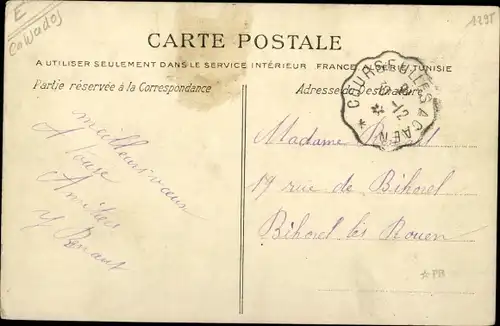 E
Calvados
1295
CARTE POSTALE
A UTILISER SEULEMENT DANS LE SERVICE INTÉRIEUR FRANCE ALGÉRIE TUNISIE
Partie réservée à la Correspondance
Adresse du Destinataire
COURSEULLES A CAEN
meilleurs vœux
A tous
Amitiés
Madame
17 rue de Bihorel
Bihorel lès Rouen
PB